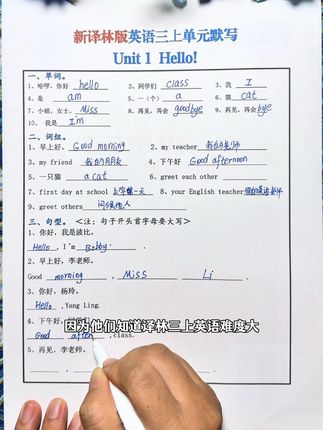 新译林版英语三上单元默写
Unit 1 Hello!
一、单词。
1、哈啰，你好 hello 2、同学们 class 3、我 I
4、是 am 5、一（个） a 6、猫 cat
7、小姐，女士， Miss 8、再见，再会 goodbye 9、再见，再会 bye
10、我是 I'm
二、词组。
1、早上好。 Good morning 2、my teacher 我的老师
3、my friend 我的朋友 4、下午好 Good afternoon
5、一只猫 a cat 6、greet each other
7、first day at school 上学第一天 8、your English teacher 你的英语老师
9、greet others 问候他人
三、句型。 <注：句子开头首字母要大写>
1、你好，我是波比。
Hello , I'm Bobby .
2、早上好，李老师。
Good morning , Miss Li .
3、你好，杨玲。
Hello ,Yang Ling.
4、下午好，
因为他们知道译林三上英语难度大
Good after , class.
5、再见，李老师。